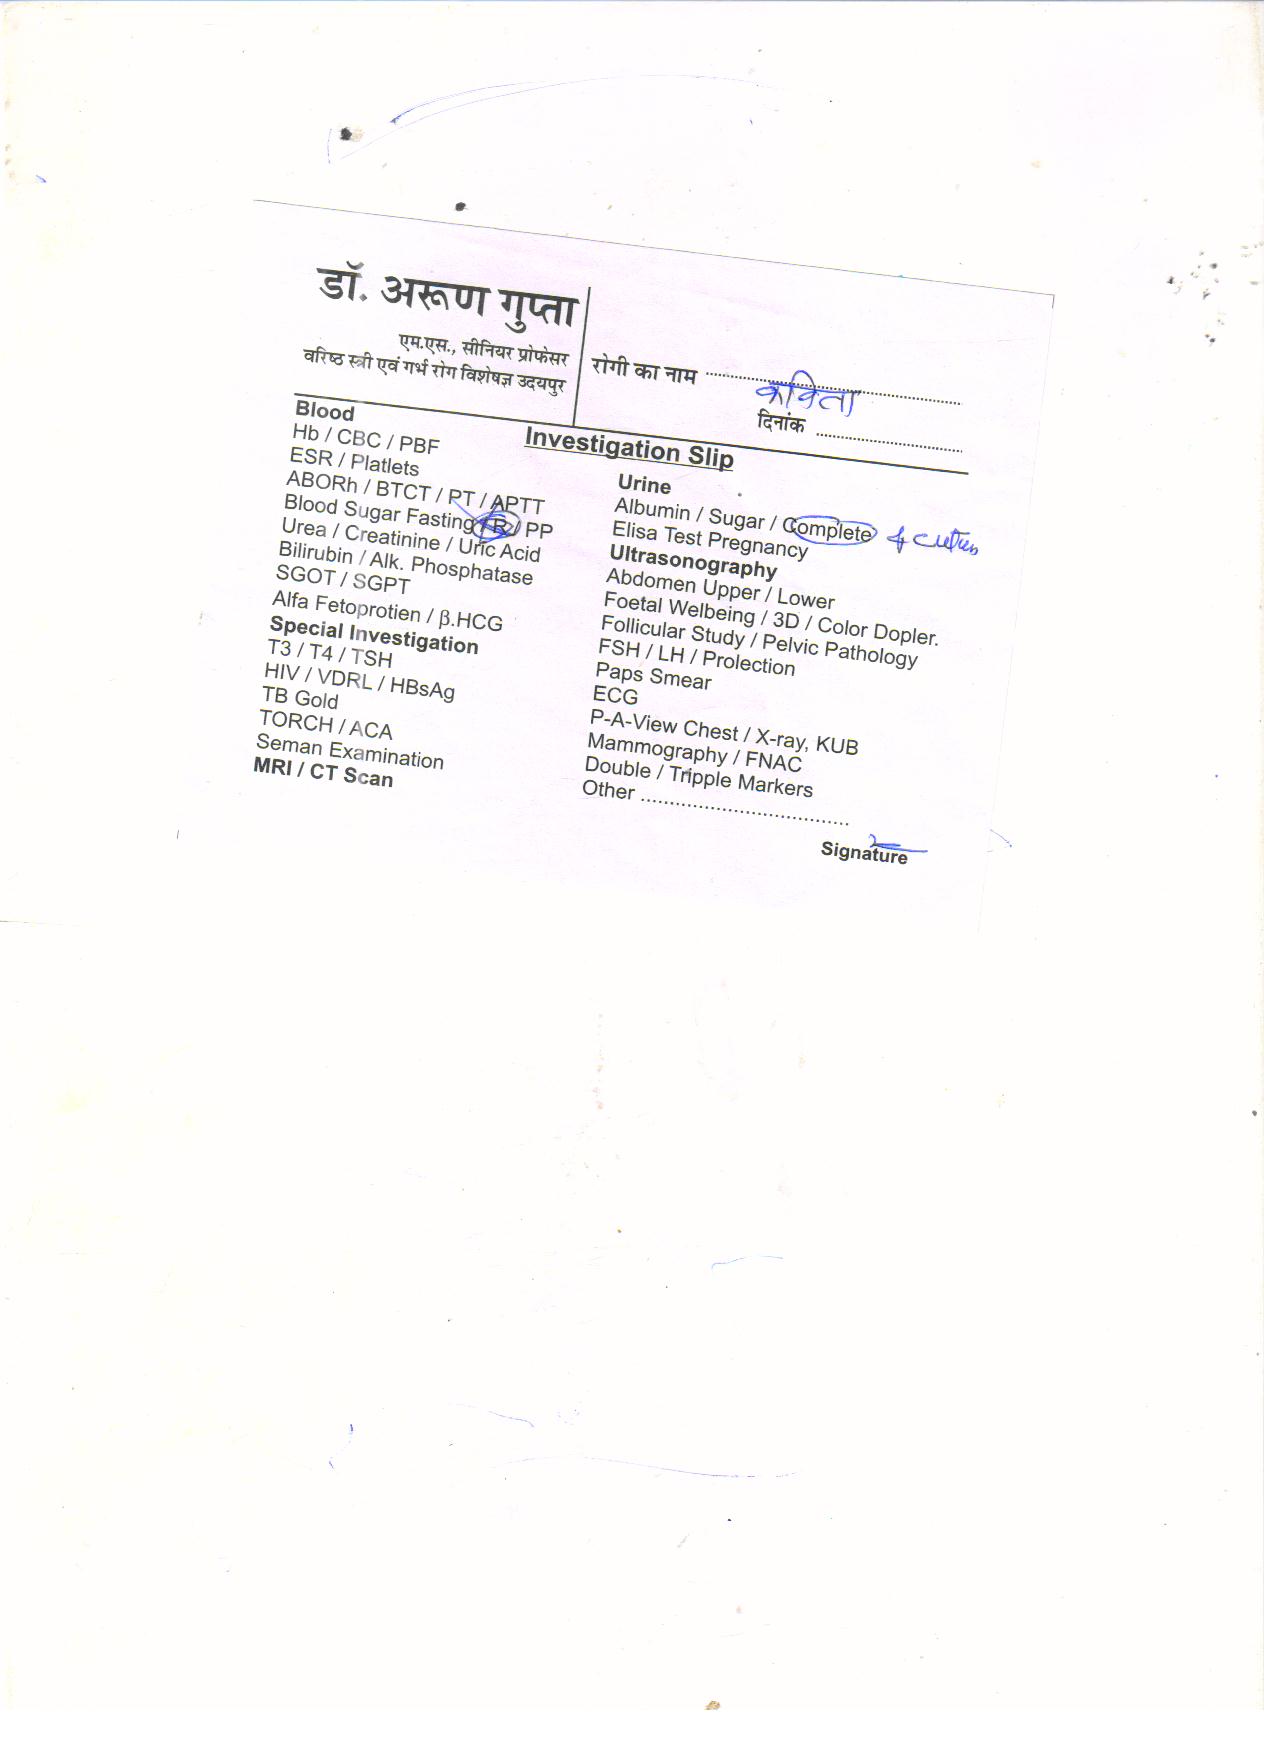 डॉ. अरूण गुप्ता
एम.एस., सीनियर प्रोफेसर
वरिष्ठ स्त्री एवं गर्भ रोग विशेषज्ञ उदयपुर
रोगी का नाम कविता
दिनांक
Investigation Slip
Blood
Hb / CBC / PBF
ESR / Platlets
ABORh / BTCT / PT / APTT
Blood Sugar Fasting / R / PP
Urea / Creatinine / Uric Acid
Bilirubin / Alk. Phosphatase
SGOT / SGPT
Alfa Fetoprotien / β.HCG
Special Investigation
T3 / T4 / TSH
HIV / VDRL / HBsAg
TB Gold
TORCH / ACA
Seman Examination
MRI / CT Scan
Urine
Albumin / Sugar / Complete
Elisa Test Pregnancy
Ultrasonography
Abdomen Upper / Lower
Foetal Welbeing / 3D / Color Dopler.
Follicular Study / Pelvic Pathology
FSH / LH / Prolection
Paps Smear
ECG
P-A-View Chest / X-ray, KUB
Mammography / FNAC
Double / Tripple Markers
Other
Signature